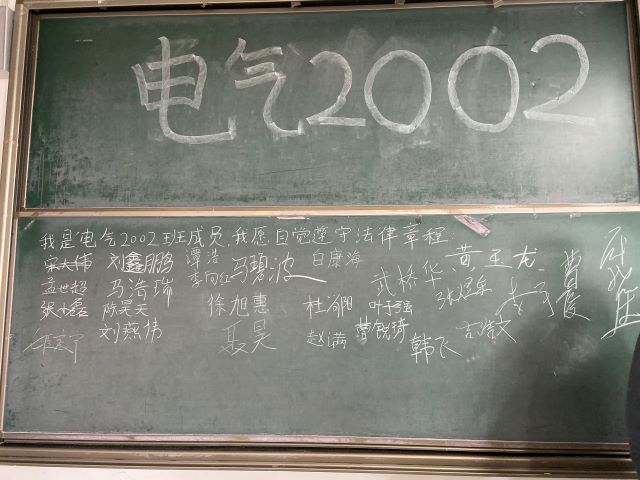 电气2002
我是电气2002班成员,我愿自觉遵守法律章程
宋大伟 刘鑫鹏 谭浩 马碧波 白康海 黄玉龙
孟世超 马浩瑞 李向红 武桥华
张小磊 陈昊天 徐旭惠 杜尚阳 叶子强 曹俊
刘燕伟 聂昊 赵满 曹锐琦 韩飞 吉浩文